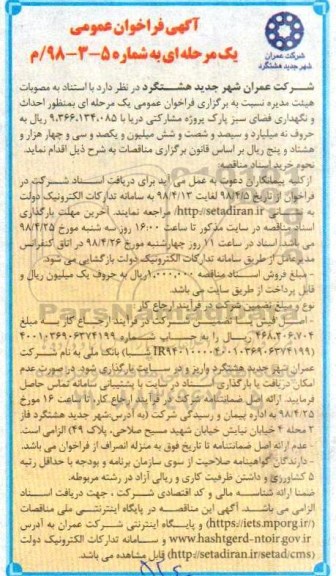 شرکت عمران
شهر جدید هشتگرد
آگهی فراخوان عمومی
یک مرحله ای به شماره ۵-۳-۹۸/م
شرکت عمران شهر جدید هشتگرد در نظر دارد با استناد به مصوبات
هیئت مدیره نسبت به برگزاری فراخوان عمومی یک مرحله ای بمنظور احداث
و نگهداری فضای سبز پارک پروژه مشارکتی دریا با ۹,۳۶۶,۱۳۴,۰۸۵ ریال به
حروف نه میلیارد و سیصد و شصت و شش میلیون و یکصد و سی و چهار هزار و
هشتاد و پنج ریال بر اساس قانون برگزاری مناقصات به شرح ذیل اقدام نماید.
نحوه خرید اسناد مناقصه
از کلیه پیمانکاران دعوت به عمل می آید برای دریافت اسناد شرکت در
فراخوان از تاریخ ۹۸/۴/۵ لغایت ۹۸/۴/۱۳ به سامانه تدارکات الکترونیک دولت
به آدرس http://setadiran.ir مراجعه نمایند. آخرین مهلت بارگذاری
اسناد مناقصه در سایت مذکور تا ساعت ۱۶:۰۰ روز سه شنبه مورخ ۹۸/۴/۲۵
می باشد. اسناد در ساعت ۱۱ روز چهارشنبه مورخ ۹۸/۴/۲۶ در اتاق کنفرانس
مدیرعامل از طریق سامانه تدارکات الکترونیک دولت بازگشایی می شود.
- مبلغ فروش اسناد مناقصه ۱,۰۰۰,۰۰۰ ریال به حروف یک میلیون ریال و
قابل پرداخت از طریق سایت می باشد.
نوع و مبلغ تضمین شرکت در فرآیند ارجاع کار
- اصل فیش یا تضمین شرکت در فرآیند ارجاع کار به مبلغ
۴۶۸,۳۰۶,۷۰۴ ریال را به حساب شماره
بانک ملی به نام شرکت
عمران شهر جدید هشتگرد واریز و در سایت بارگذاری شود. در صورت عدم
امکان دریافت یا بارگذاری اسناد در سایت با پشتیبانی سامانه تماس حاصل
فرمایید. ارائه اصل ضمانتنامه شرکت در فرآیند ارجاع کار تا ساعت ۱۶ مورخ
۹۸/۴/۲۵ به اداره پیمان و رسیدگی شرکت (به آدرس شهر جدید هشتگرد فاز
۲ محله ۴ خیابان نیایش خیابان شهید مسیح صلاحی، پلاک ۴۹) الزامی است.
- عدم ارائه اصل ضمانتنامه تا تاریخ فوق به منزله انصراف از فراخوان می باشد.
- دارندگان گواهینامه صلاحیت از سوی سازمان برنامه و بودجه با حداقل رتبه
۵ کشاورزی و داشتن ظرفیت کاری و ریالی آزاد در رشته مربوطه.
ضمنا ارائه شناسه مالی و کد اقتصادی شرکت، جهت دریافت اسناد
الزامی می باشد. آگهی این مناقصه در پایگاه اینترنتی ملی مناقصات
(https://iets.mporg.ir/) و پایگاه اینترنتی شرکت عمران به آدرس
www.hashtgerd-ntoir.gov.ir و سامانه تدارکات الکترونیک دولت
(http://setadiran.ir/setad/cms) قابل مشاهده می باشد.